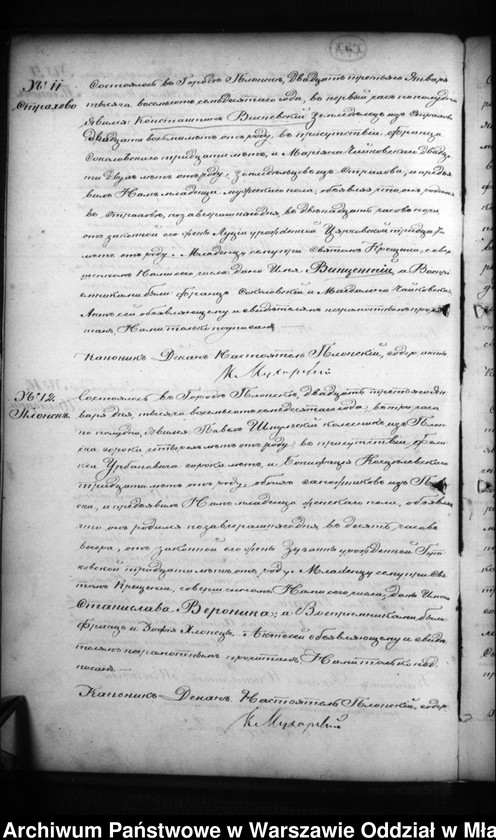 № 11
Страхово
Состоялось въ Городѣ Плонскѣ, Двадцать третьяго Января
тысяча восемьсотъ семьдесятаго года, въ первый часъ пополудни
явился Константинъ Висневскій земледѣлецъ изъ Страхова
двадцати восьми лѣтъ отъ роду, въ присутствіи Франца
Соколовскаго тридцати лѣтъ, и Маріяна Чайковскаго двадца-
ти двухъ лѣтъ отъ роду, земледѣльцевъ изъ Страхова, и предъя-
вилъ Намъ младенца мужескаго пола, объявляя что онъ родился
въ Страховѣ, позавчерашняго дня, въ двѣнадцать часовъ ночи
отъ законной его жены Луціи урожденной тридцати
лѣтъ отъ роду. Младенцу сему при Святомъ Крещеніи, совер-
шенномъ Нами сего числа дано Имя Винцентій, а Воспрі-
емниками были Францъ Соколовскій и Магдалина Чайковская.
Актъ сей объявляющему и свидѣтелямъ неграмотнымъ проч-
танъ, Нами только подписанъ.
Каноникъ Деканъ Настоятель Плонскій, содер. акты
№ 12.
Плонскъ.
Состоялось въ Городѣ Плонскѣ, двадцать третьяго Ян-
варя дня, тысяча восемьсотъ семьдесятаго года, въ три часа
по полудни, явился Павелъ колесникъ изъ Плон-
ска сорока четырехъ лѣтъ отъ роду, въ присутствіи
Урбановича сорока лѣтъ, и Бонифація
тридцати лѣтъ отъ роду, обоихъ изъ
и предъявилъ Намъ младенца женскаго пола, объявляя
что онъ родился позавчерашняго дня въ десять часовъ
вечера, отъ законной его жены Зузанны урожденной
тридцати лѣтъ отъ роду. Младенцу сему при Свя-
томъ Крещеніи, совершенномъ Нами сего числа, дано Имя
Станислава Вероника; а Воспріемниками были
Францъ и Зофія Хлопецъ. Актъ сей объявляющему и свидѣ-
телямъ неграмотнымъ прочтанъ, Нами только под-
писанъ.—
Каноникъ Деканъ Настоятель Плонскій, содер.
Archiwum Państwowe w Warszawie Oddział w Mła